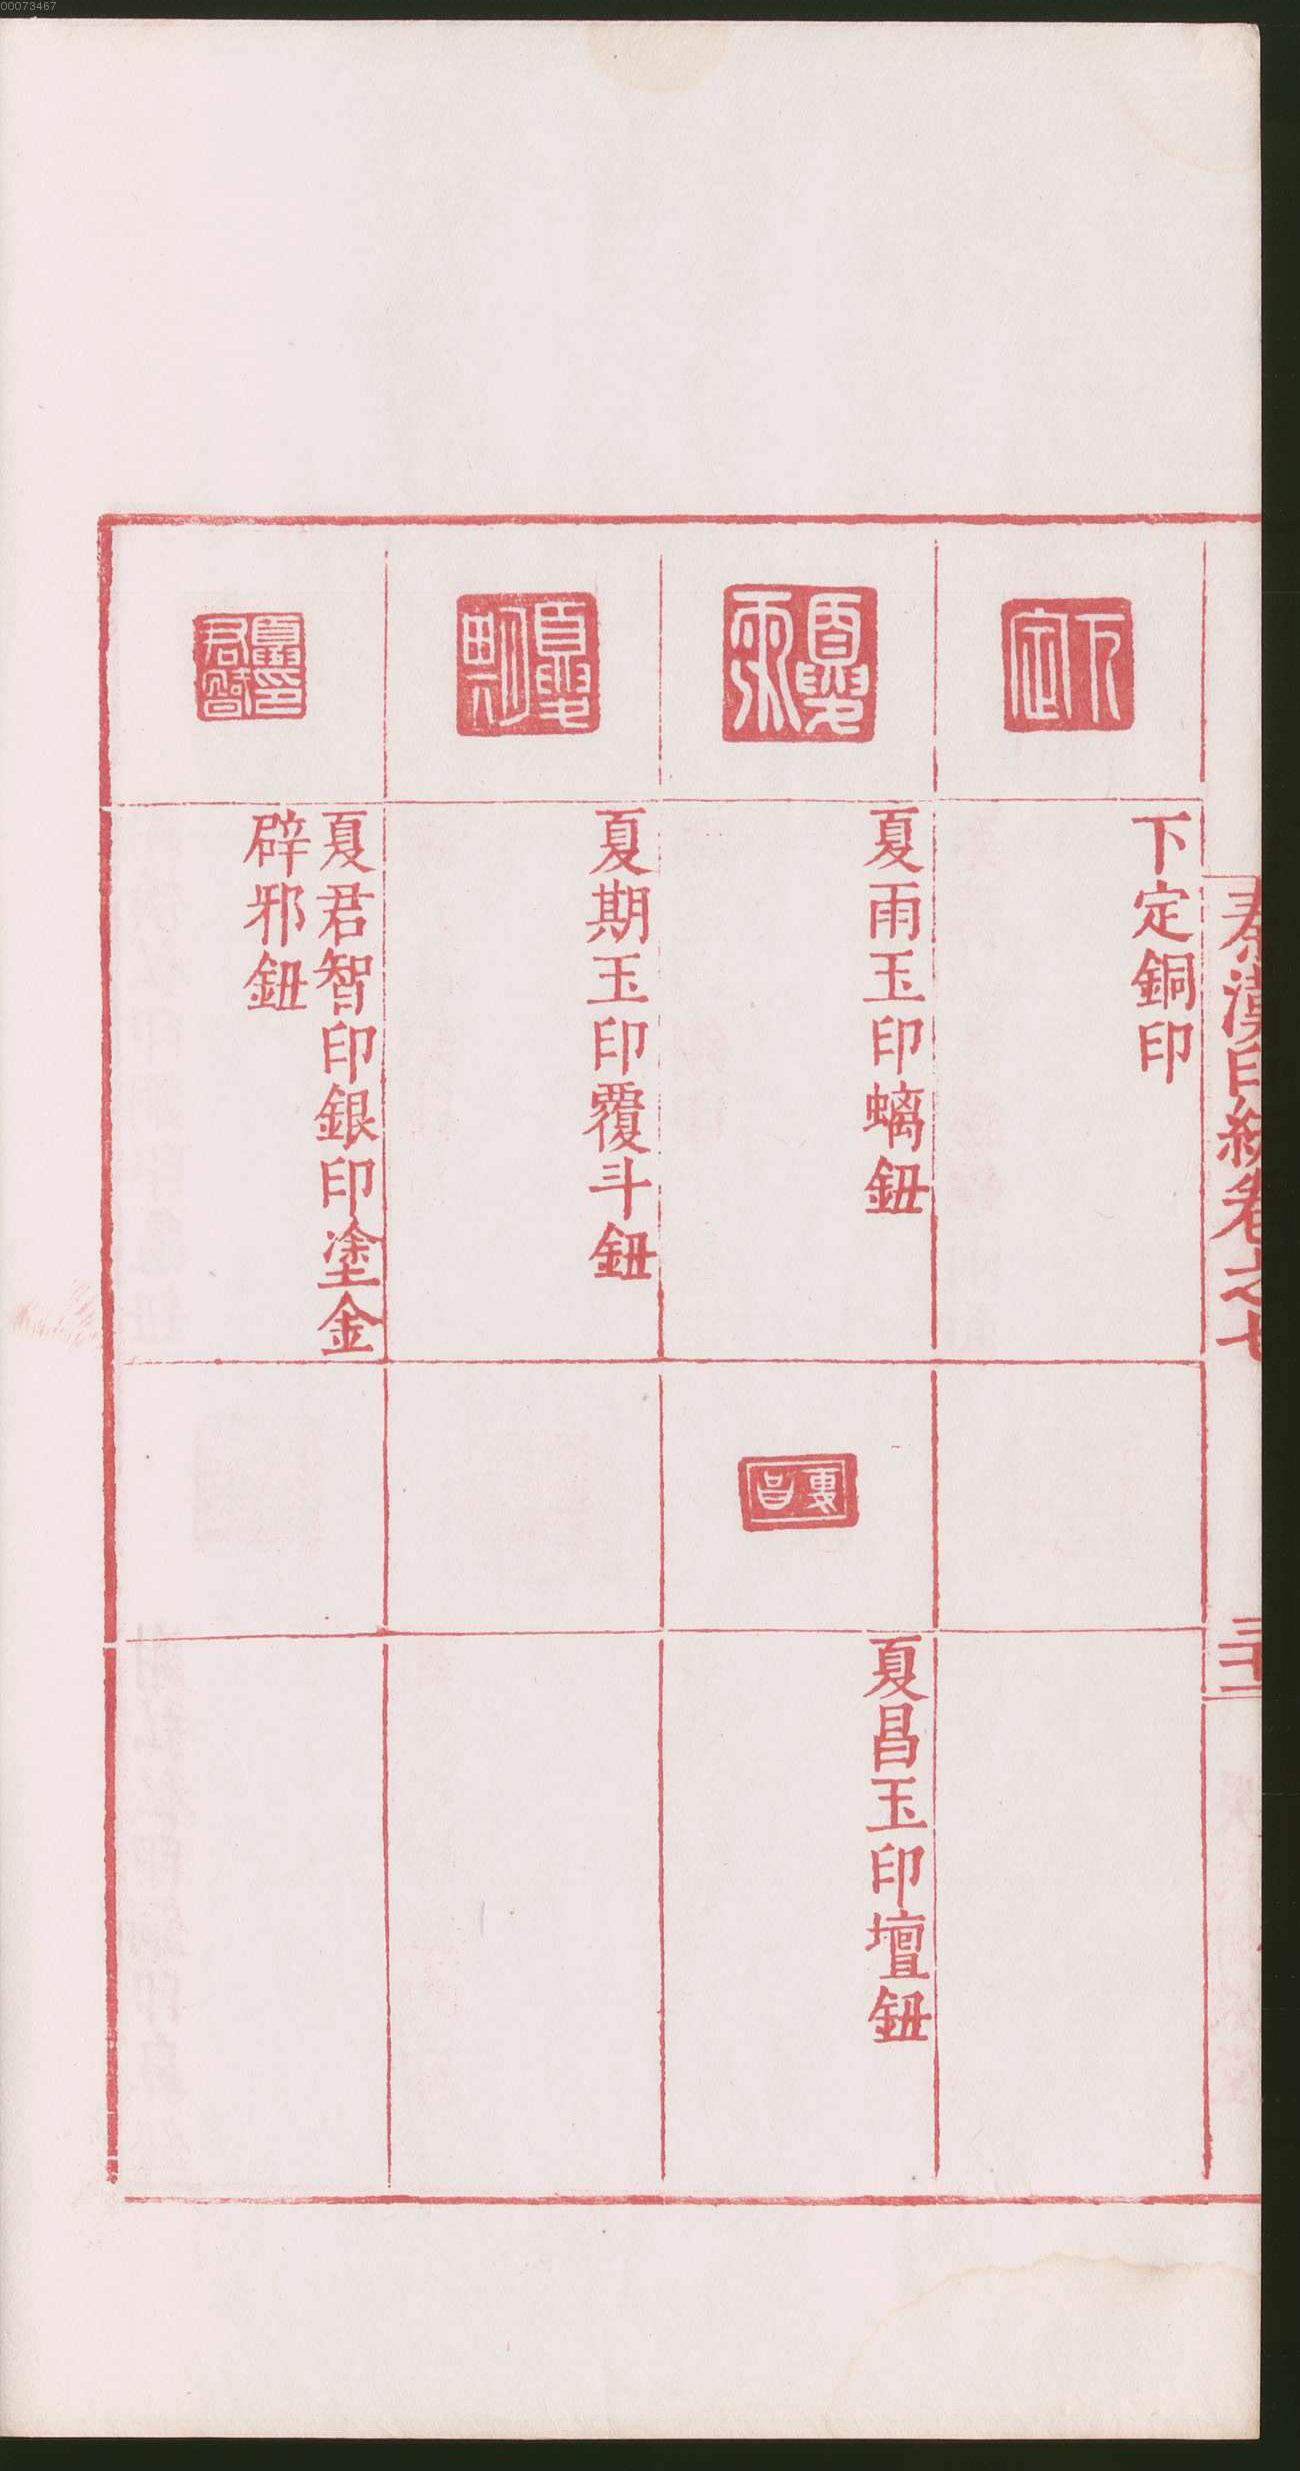 00073467
秦漢印統卷之七
三十二
下定
下定銅印
夏雨
夏雨玉印螭鈕
夏昌
夏昌玉印壇鈕
夏期
夏期玉印覆斗鈕
夏君智印
夏君智印銀印塗金
辟邪鈕